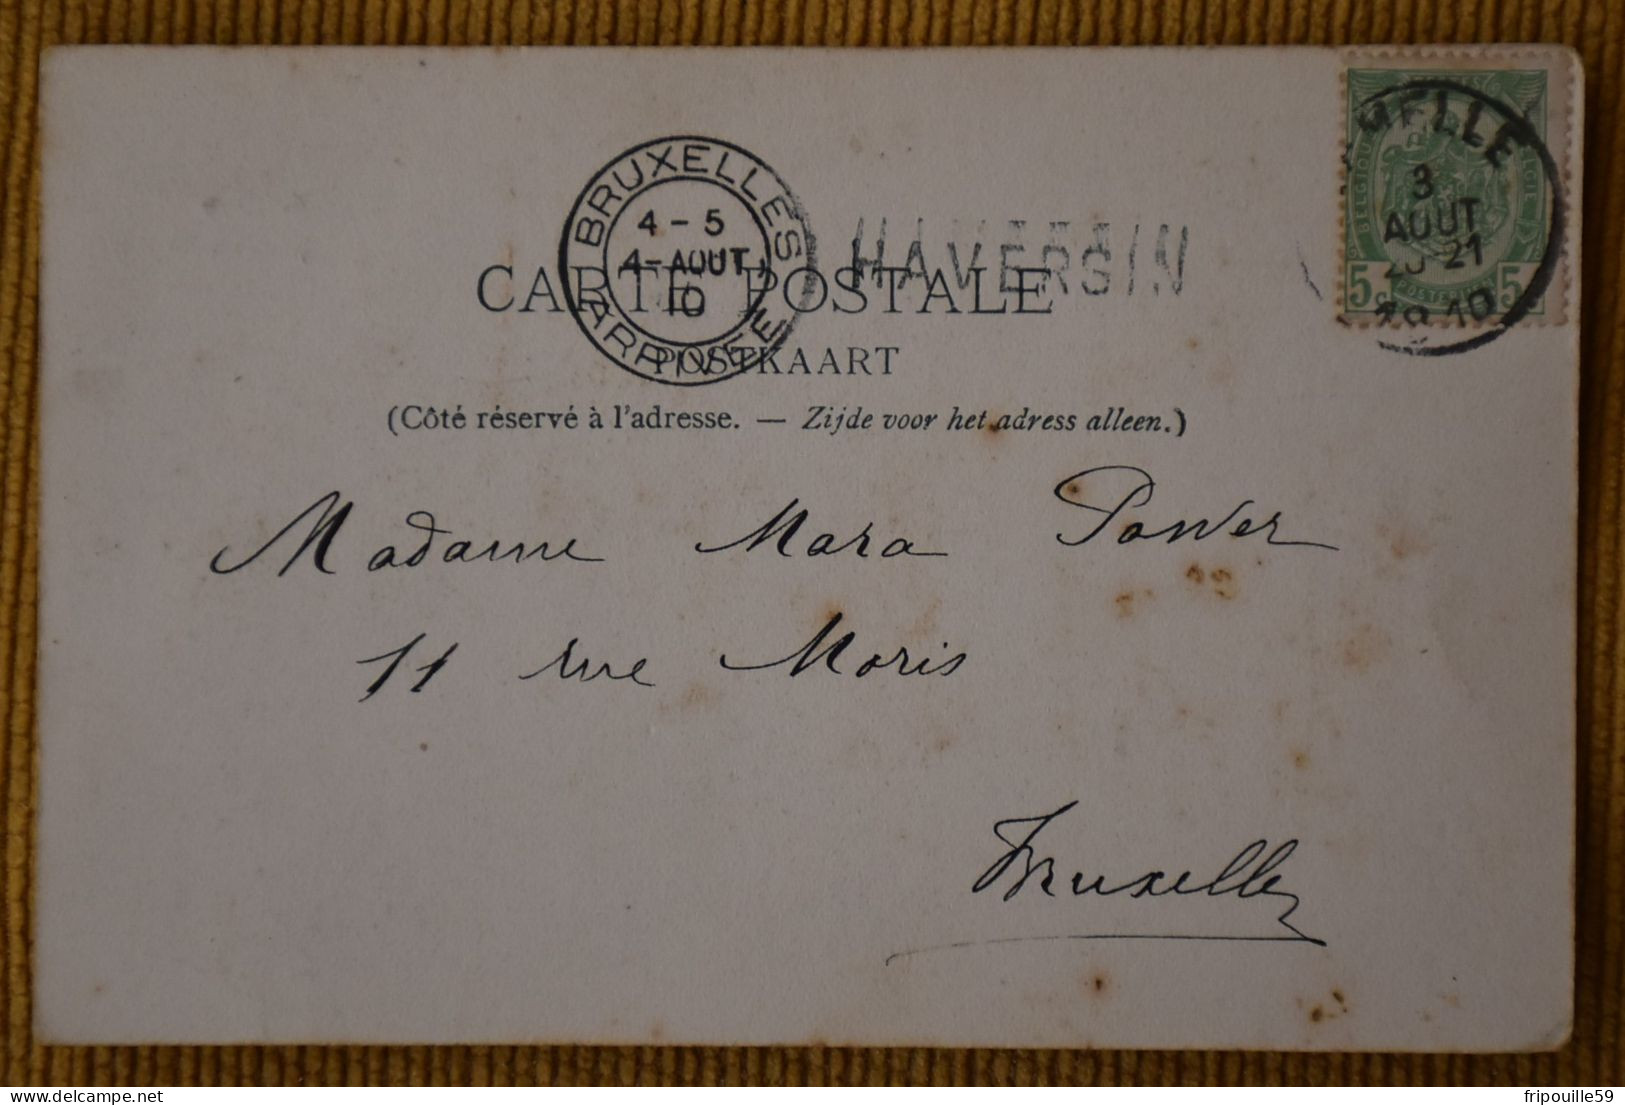 BRUXELLES
4 - 5
4 - AOUT
10
ARRIVEE
HAVERSIN
HAVERSIN
MELLE
3
AOUT
20 21
1910
BELGIQUE
POSTES
5 c 5
CARTE POSTALE
POSTKAART
(Côté réservé à l'adresse. — Zijde voor het adress alleen.)
Madame Mara Power
11 rue Moris
Bruxelles
fripouille59